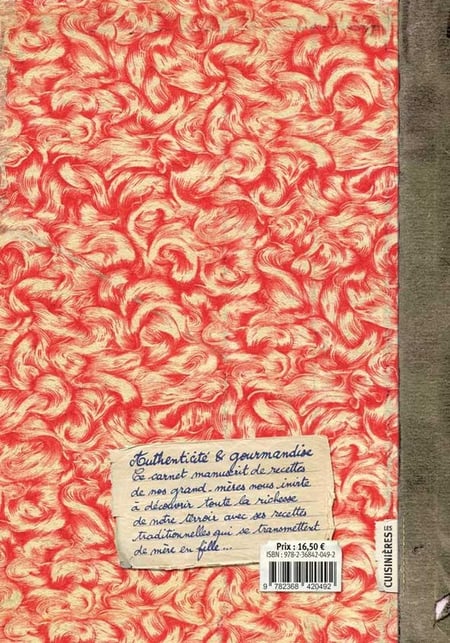 Authenticité & gourmandise
Ce carnet manuscrit de recettes
de nos grand-mères nous invite
à découvrir toute la richesse
de notre terroir avec ses recettes
traditionnelles qui se transmettent
de mère en fille...
Prix : 16,50 €
ISBN : 978-2-36842-049-2
9 782368 420492
CUISINIÈRES